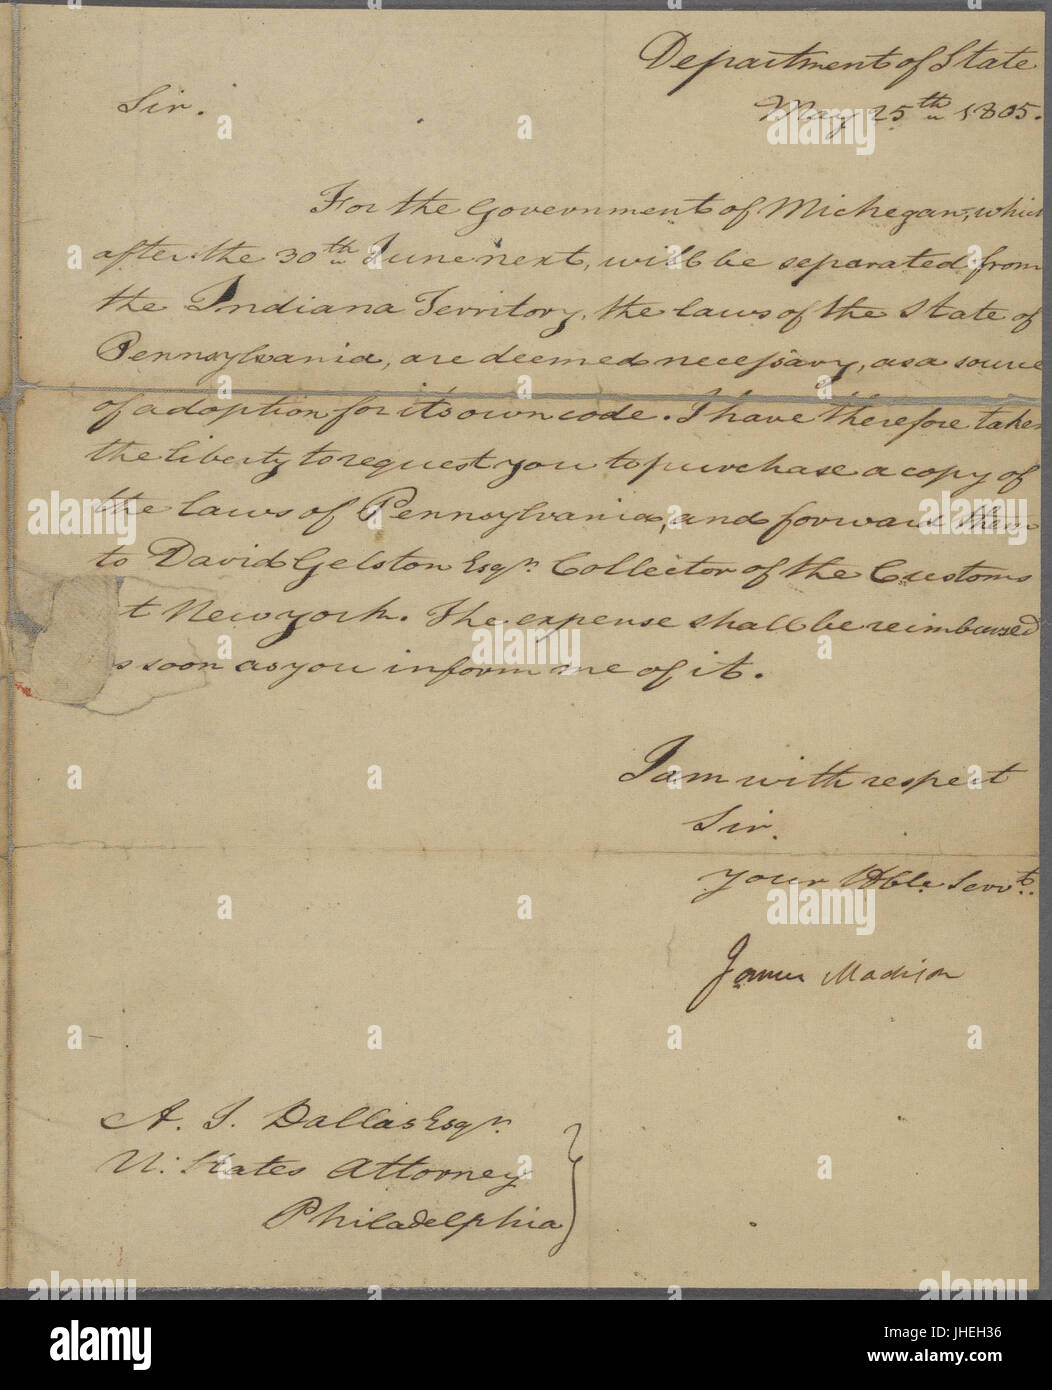 Department of State
May 25th 1805.
Sir.
For the Government of Michegan, which
after the 30th June next, will be separated from
the Indiana Territory, the laws of the State of
Pennsylvania, are deemed necessary, as a source
of adoption for its own code. I have therefore taken
the liberty to request you to purchase a copy of
the laws of Pennsylvania, and forward them
to David Gelston Esqr. Collector of the Customs
t New york. The expense shall be reimbursed
s soon as you inform me of it.
I am with respect
Sir.
your Hble Servt.
James Madison
A. J. Dallas Esqr.
U. States Attorney
Philadelphia
alamy
a
alamy stock photo
JHEH36
www.alamy.com